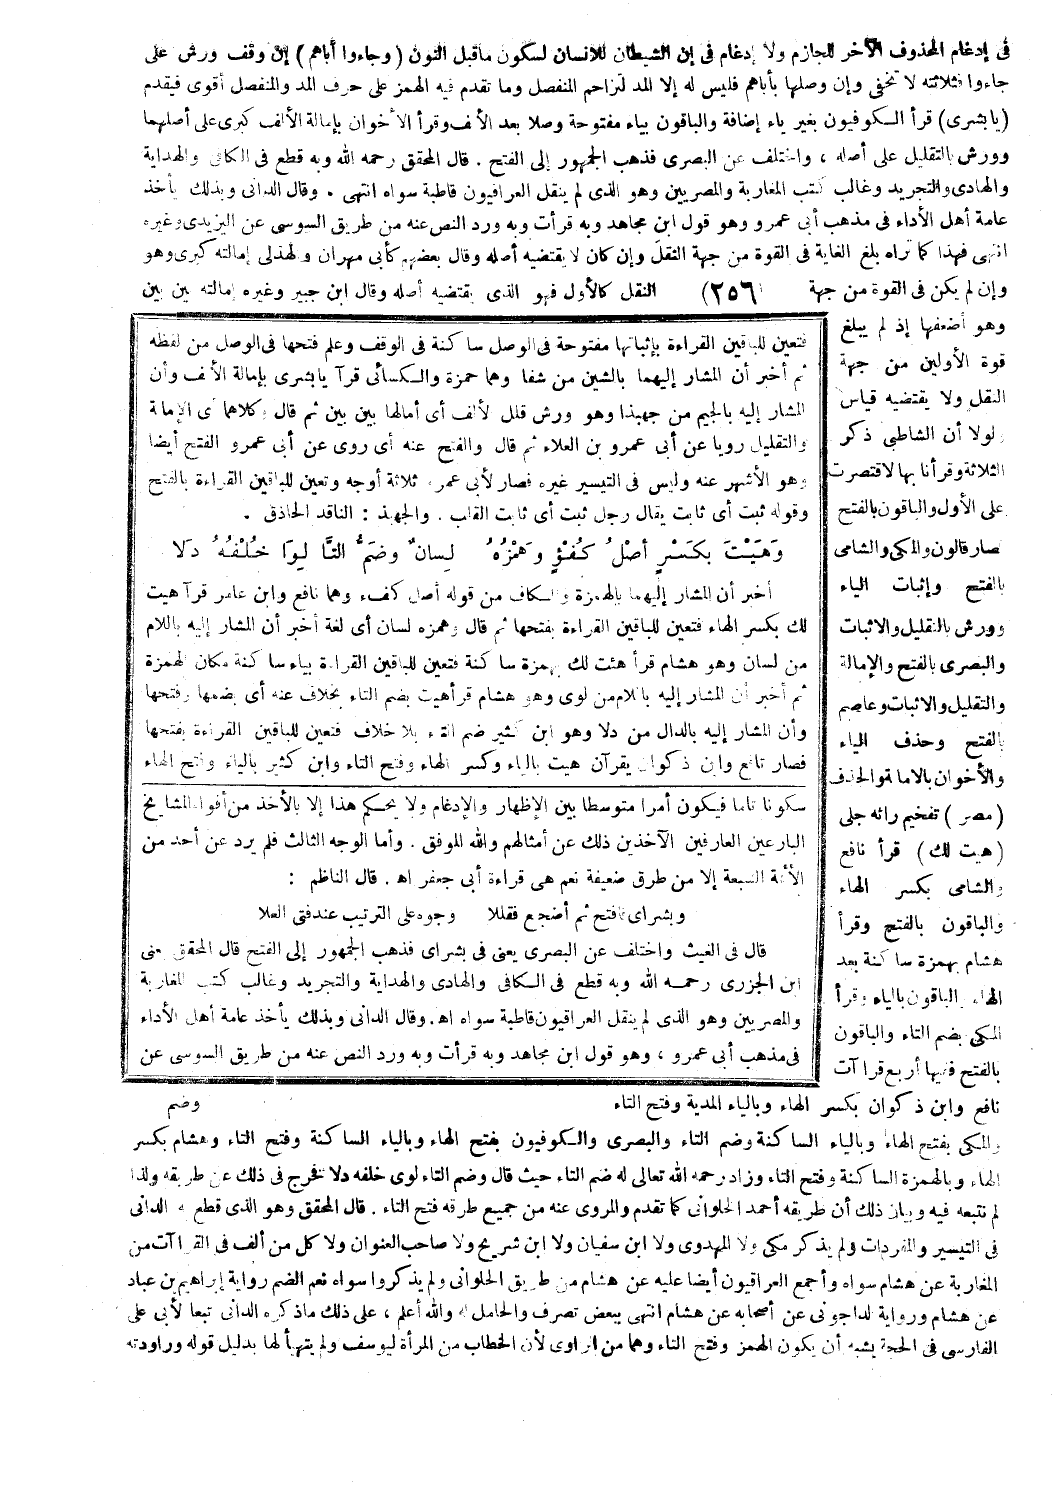 فى إدغام المحذوف الآخر للجازم ولا إدغام فى إن الشيطان للانسان لسكون ماقبل النون (وجاءوا أباهم) إن وقف ورش على
جاءوا فثلاثته لا تخفى وإن وصلها بأباهم فليس له إلا المد لتزاحم المنفصل وما تقدم فيه الهمز على حرف المد والمنفصل أقوى فيقدم
(يابشرى) قرأ الكوفيون بغير ياء إضافة والباقون بياء مفتوحة وصلا بعد الألف وقرأ الأخوان بإمالة الألف كبرى على أصلهما
وورش بالتقليل على أصله ، واختلف عن البصرى فذهب الجمهور إلى الفتح . قال المحقق رحمه الله وبه قطع فى الكافى والهداية
والهادى والتجريد وغالب كتب المغاربة والمصريين وهو الذى لم ينقل العراقيون قاطبة سواه انتهى . وقال الدانى وبذلك يأخذ
عامة أهل الأداء فى مذهب أبى عمرو وهو قول ابن مجاهد وبه قرأت وبه ورد النص عنه من طريق السوسى عن اليزيدى وغيره
انتهى فهذا كما تراه بلغ الغاية فى القوة من جهة النقل وإن كان لا يقتضيه أصله وقال بعضهم كأبى مهران والهذلى إمالته كبرى وهو
وإن لم يكن فى القوة من جهة (٢٥٦) النقل كالأول فهو الذى يقتضيه أصله وقال ابن جبير وغيره إمالته بين بين
وهو أضعفها إذ لم يبلغ
قوة الأولين من جهة
النقل ولا يقتضيه قياس
ولولا أن الشاطبى ذكر
الثلاثة وقرأنا بها لاقتصرت
على الأول والباقون بالفتح
فصار قالون والمكى والشامى
بالفتح وإثبات الياء
وورش بالتقليل والاثبات
والبصرى بالفتح والإمالة
والتقليل والاثبات وعاصم
بالفتح وحذف الياء
والأخوان بالامالة والحذف
(مصر) تفخيم رائه جلى
(هيت لك) قرأ نافع
والشامى بكسر الهاء
والباقون بالفتح وقرأ
هشام بهمزة ساكنة بعد
الهاء والباقون بالياء وقرأ
المكى بضم التاء والباقون
بالفتح ففيها أربع قرا آت
فتعين للباقين القراءة بإثباتها مفتوحة فى الوصل ساكنة فى الوقف وعلم فتحها فى الوصل من لفظه
ثم أخبر أن المشار إليهما بالشين من شفا وهما حمزة والكسائى قرآ يابشرى بإمالة الألف وأن
المشار إليه بالجيم من جهبذا وهو ورش قلل الألف أى أمالها بين بين ثم قال وكلاهما أى الإمالة
والتقليل رويا عن أبى عمرو بن العلاء ثم قال والفتح عنه أى روى عن أبى عمرو الفتح أيضا
وهو الأشهر عنه وليس فى التيسير غيره فصار لأبى عمرو ثلاثة أوجه وتعين للباقين القراءة بالفتح
وقوله ثبت أى ثابت يقال رجل ثبت أى ثابت القلب . والجهبذ : الناقد الحاذق .
وَهَيْتَ بِكَسْرٍ أَصْلُ كُفْؤٍ وَهَمْزُهُ لِسَانٌ وَضَمُّ التَّا لِوَا خُلْفُهُ دَلَا
أخبر أن المشار إليهما بالهمزة والكاف من قوله أصل كفء وهما نافع وابن عامر قرآ هيت
لك بكسر الهاء فتعين للباقين القراءة بفتحها ثم قال وهمزه لسان أى لغة أخبر أن المشار إليه باللام
من لسان وهو هشام قرأ هئت لك بهمزة ساكنة فتعين للباقين القراءة بياء ساكنة مكان الهمزة
ثم أخبر أن المشار إليه باللام من لوى وهو هشام قرأ هيت بضم التاء بخلاف عنه أى بضمها وفتحها
وأن المشار إليه بالدال من دلا وهو ابن كثير ضم التاء بلا خلاف فتعين للباقين القراءة بفتحها
فصار نافع وابن ذكوان يقرآن هيت بالياء وكسر الهاء وفتح التاء وابن كثير بالياء وفتح الهاء
سكونا تاما فيكون أمرا متوسطا بين الإظهار والإدغام ولا يحكم هذا إلا بالأخذ من أفواه المشايخ
البارعين العارفين الآخذين ذلك عن أمثالهم والله الموفق . وأما الوجه الثالث فلم يرد عن أحد من
الأئمة السبعة إلا من طرق ضعيفة نعم هى قراءة أبى جعفر اه . قال الناظم :
وبشراى فافتح ثم أضجع فقللا وجوه على الترتيب عند فتى العلا
قال فى الغيث واختلف عن البصرى يعنى فى بشراى فذهب الجمهور إلى الفتح قال المحقق يعنى
ابن الجزرى رحمه الله وبه قطع فى الكافى والهادى والهداية والتجريد وغالب كتب المغاربة
والمصريين وهو الذى لم ينقل العراقيون قاطبة سواه اه. وقال الدانى وبذلك يأخذ عامة أهل الأداء
فى مذهب أبى عمرو ، وهو قول ابن مجاهد وبه قرأت وبه ورد النص عنه من طريق السوسى عن
نافع وابن ذكوان بكسر الهاء وبالياء المدية وفتح التاء وضم
والمكى بفتح الهاء وبالياء الساكنة وضم التاء والبصرى والكوفيون بفتح الهاء وبالياء الساكنة وفتح التاء وهشام بكسر
الهاء وبالهمزة الساكنة وفتح التاء وزاد رحمه الله تعالى له ضم التاء حيث قال وضم التاء لوى خلفه دلا فخرج فى ذلك عن طريقه ولذا
لم نتبعه فيه وبيان ذلك أن طريقه أحمد الحلوانى كما تقدم والمروى عنه من جميع طرقه فتح التاء . قال المحقق وهو الذى قطع به الدانى
فى التيسير والمفردات ولم يذكر مكى ولا المهدوى ولا ابن سفيان ولا ابن شريح ولا صاحب العنوان ولا كل من ألف فى القرا آت من
المغاربة عن هشام سواه وأجمع العراقيون أيضا عليه عن هشام من طريق الحلوانى ولم يذكروا سواه نعم الضم رواية إبراهيم بن عباد
عن هشام ورواية الداجونى عن أصحابه عن هشام انتهى ببعض تصرف والحامل له والله أعلم ، على ذلك ماذكره الدانى تبعا لأبى على
الفارسى فى الحجة يشبه أن يكون الهمز وفتح التاء وهما من الراوى لأن الخطاب من المرأة ليوسف ولم يتهيأ لها بدليل قوله وراودته